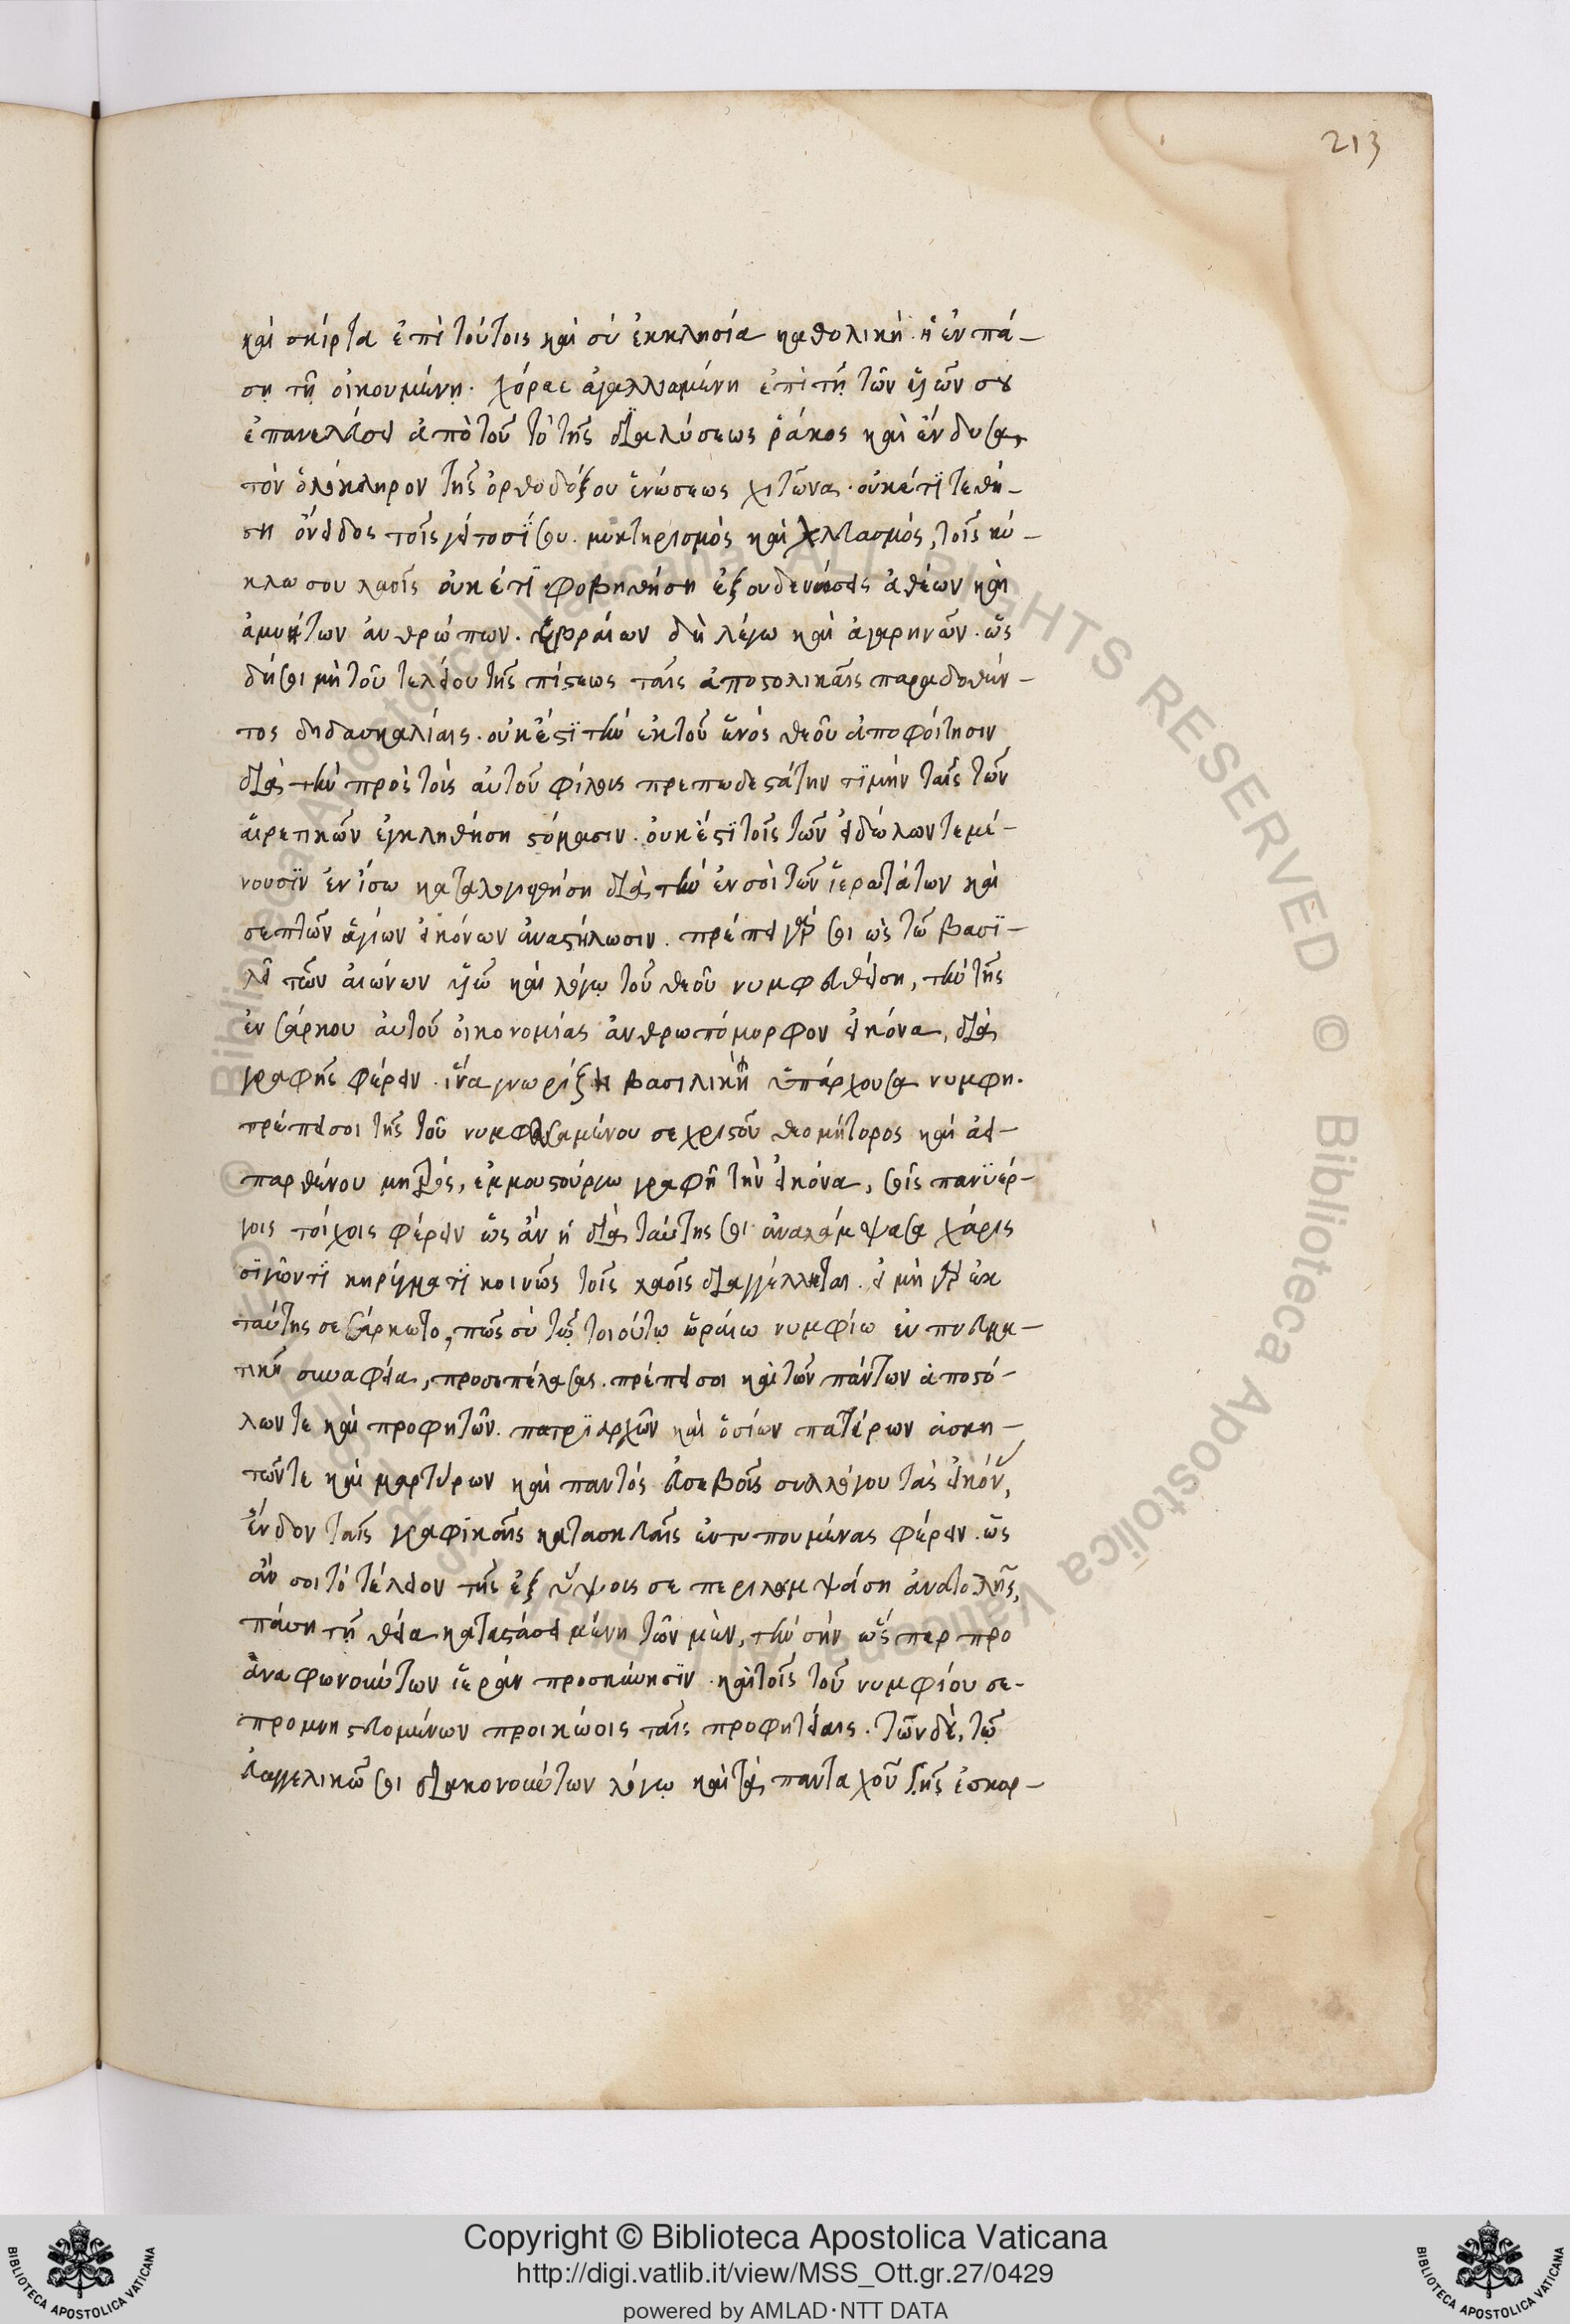 213
καὶ σκίρτα ἐπὶ τούτοις καὶ σύ ἐκκλησία καθολικὴ. ἡ ἐν πά-
σῃ τῇ οἰκουμένῃ. χόρευε ἀγαλλιαμένη ἐπὶ τῇ τῶν υἱῶν σου
ἐπανελεύσει ἀπὸ τοῦ τὸ τῆς διαλύσεως ῥάκος καὶ ἔνδυσαι
τὸν ὁλόκληρον τῆς ὀρθοδόξου ἑνώσεως χιτῶνα. οὐκέτι τεθή-
ση ὄνειδος τοῖς γείτοσί σου. μυκτηρισμὸς καὶ χλευασμός, τοῖς κύ-
κλω σου λαοῖς οὐκέτι φοβηθήση ἐξουδενώσεις ἀθέων καὶ
ἀμυήτων ἀνθρώπων. ἑβραίων δὴ λέγω καὶ ἀγαρηνῶν. ὡς
δή σοι μὴ τοῦ τελείου τῆς πίστεως ταῖς ἀποστολικαῖς παραδοθέν-
τος διδασκαλίαις. οὐκ ἔστι τὴν ἐκ τοῦ ἑνός θεοῦ ἀποφοίτησιν
διὰ τὴν πρὸς τοὺς αὐτοῦ φίλους πρεπωδεστάτην τιμήν ταῖς τῶν
αἱρετικῶν ἐγκληθήση στόμασιν. οὐκ ἔστι τοῖς τῶν εἰδώλων τεμέ-
νουσιν ἐν ἴσω καταλογισθήση διὰ τὴν ἐν σοὶ τῶν ἱερωτάτων καὶ
σεπτῶν ἁγίων εἰκόνων ἀναστήλωσιν. πρέπει γάρ σοι ὡς τῶ βασι-
λεῖ τῶν αἰώνων υἱῶ καὶ λόγω τοῦ θεοῦ νυμφευθείση, τὴν τῆς
ἐνσάρκου αὐτοῦ οἰκονομίας ἀνθρωπόμορφον εἰκόνα, διὰ
γραφῆς φέρειν. ἵνα γνωρίζη βασιλικὴ ὑπάρχουσα νυμφη.
πρέπει σοι τῆς τοῦ νυμφευσαμένου σε χριστοῦ θεομήτορος καὶ ἀει-
παρθένου μητρός, ἐμμουσούργω γραφῆ τὴν εἰκόνα, σοῖς πανιέρ-
γοις τοίχοις φέρειν ὡς ἀν ἡ διὰ ταύτης σοι ἀναλάμψασα χάρις
σιγῶντι κηρύγματι κοινῶς τοῖς λαοῖς διαγγέλληται. εἰ μὴ γὰρ ἐκ
ταύτης σεσάρκωτο, πῶς σὺ τῷ τοιούτω ὡραίω νυμφίω ἐν πνευμα-
τικῆ συναφεία, προσεπέλασας. πρέπει σοι καὶ τῶν πάντων ἀποστό-
λων τε καὶ προφητῶν. πατριαρχῶν καὶ ὁσίων πατέρων ἀσκη-
τῶν τε καὶ μαρτύρων καὶ παντός εὐσεβοῦς συλλόγου τὰς εἰκόν,
ἔνδον ταῖς γραφικαῖς κατασκευαῖς ἐντυπουμένας φέρειν. ὡς
ἀν σοι τὸ τέλειον τῆς ἐξ ὕψους σε περιλαμψάση ἀνατολῆς,
πάση τῇ θέα κατεστάσει μένη τῶν μὲν, τὴν σὴν ὥσπερ προ
ἀναφωνούντων ἱεράν προσκύνησιν. καὶ τοῖς τοῦ νυμφίου σε-
προμνηστευομένων προικώοις ταῖς προφητείαις. τῶν δὲ, τῷ
εὐαγγελικῶ σοι διακονούντων λόγω καὶ τὰς πανταχοῦ γῆς ἐσκορ-